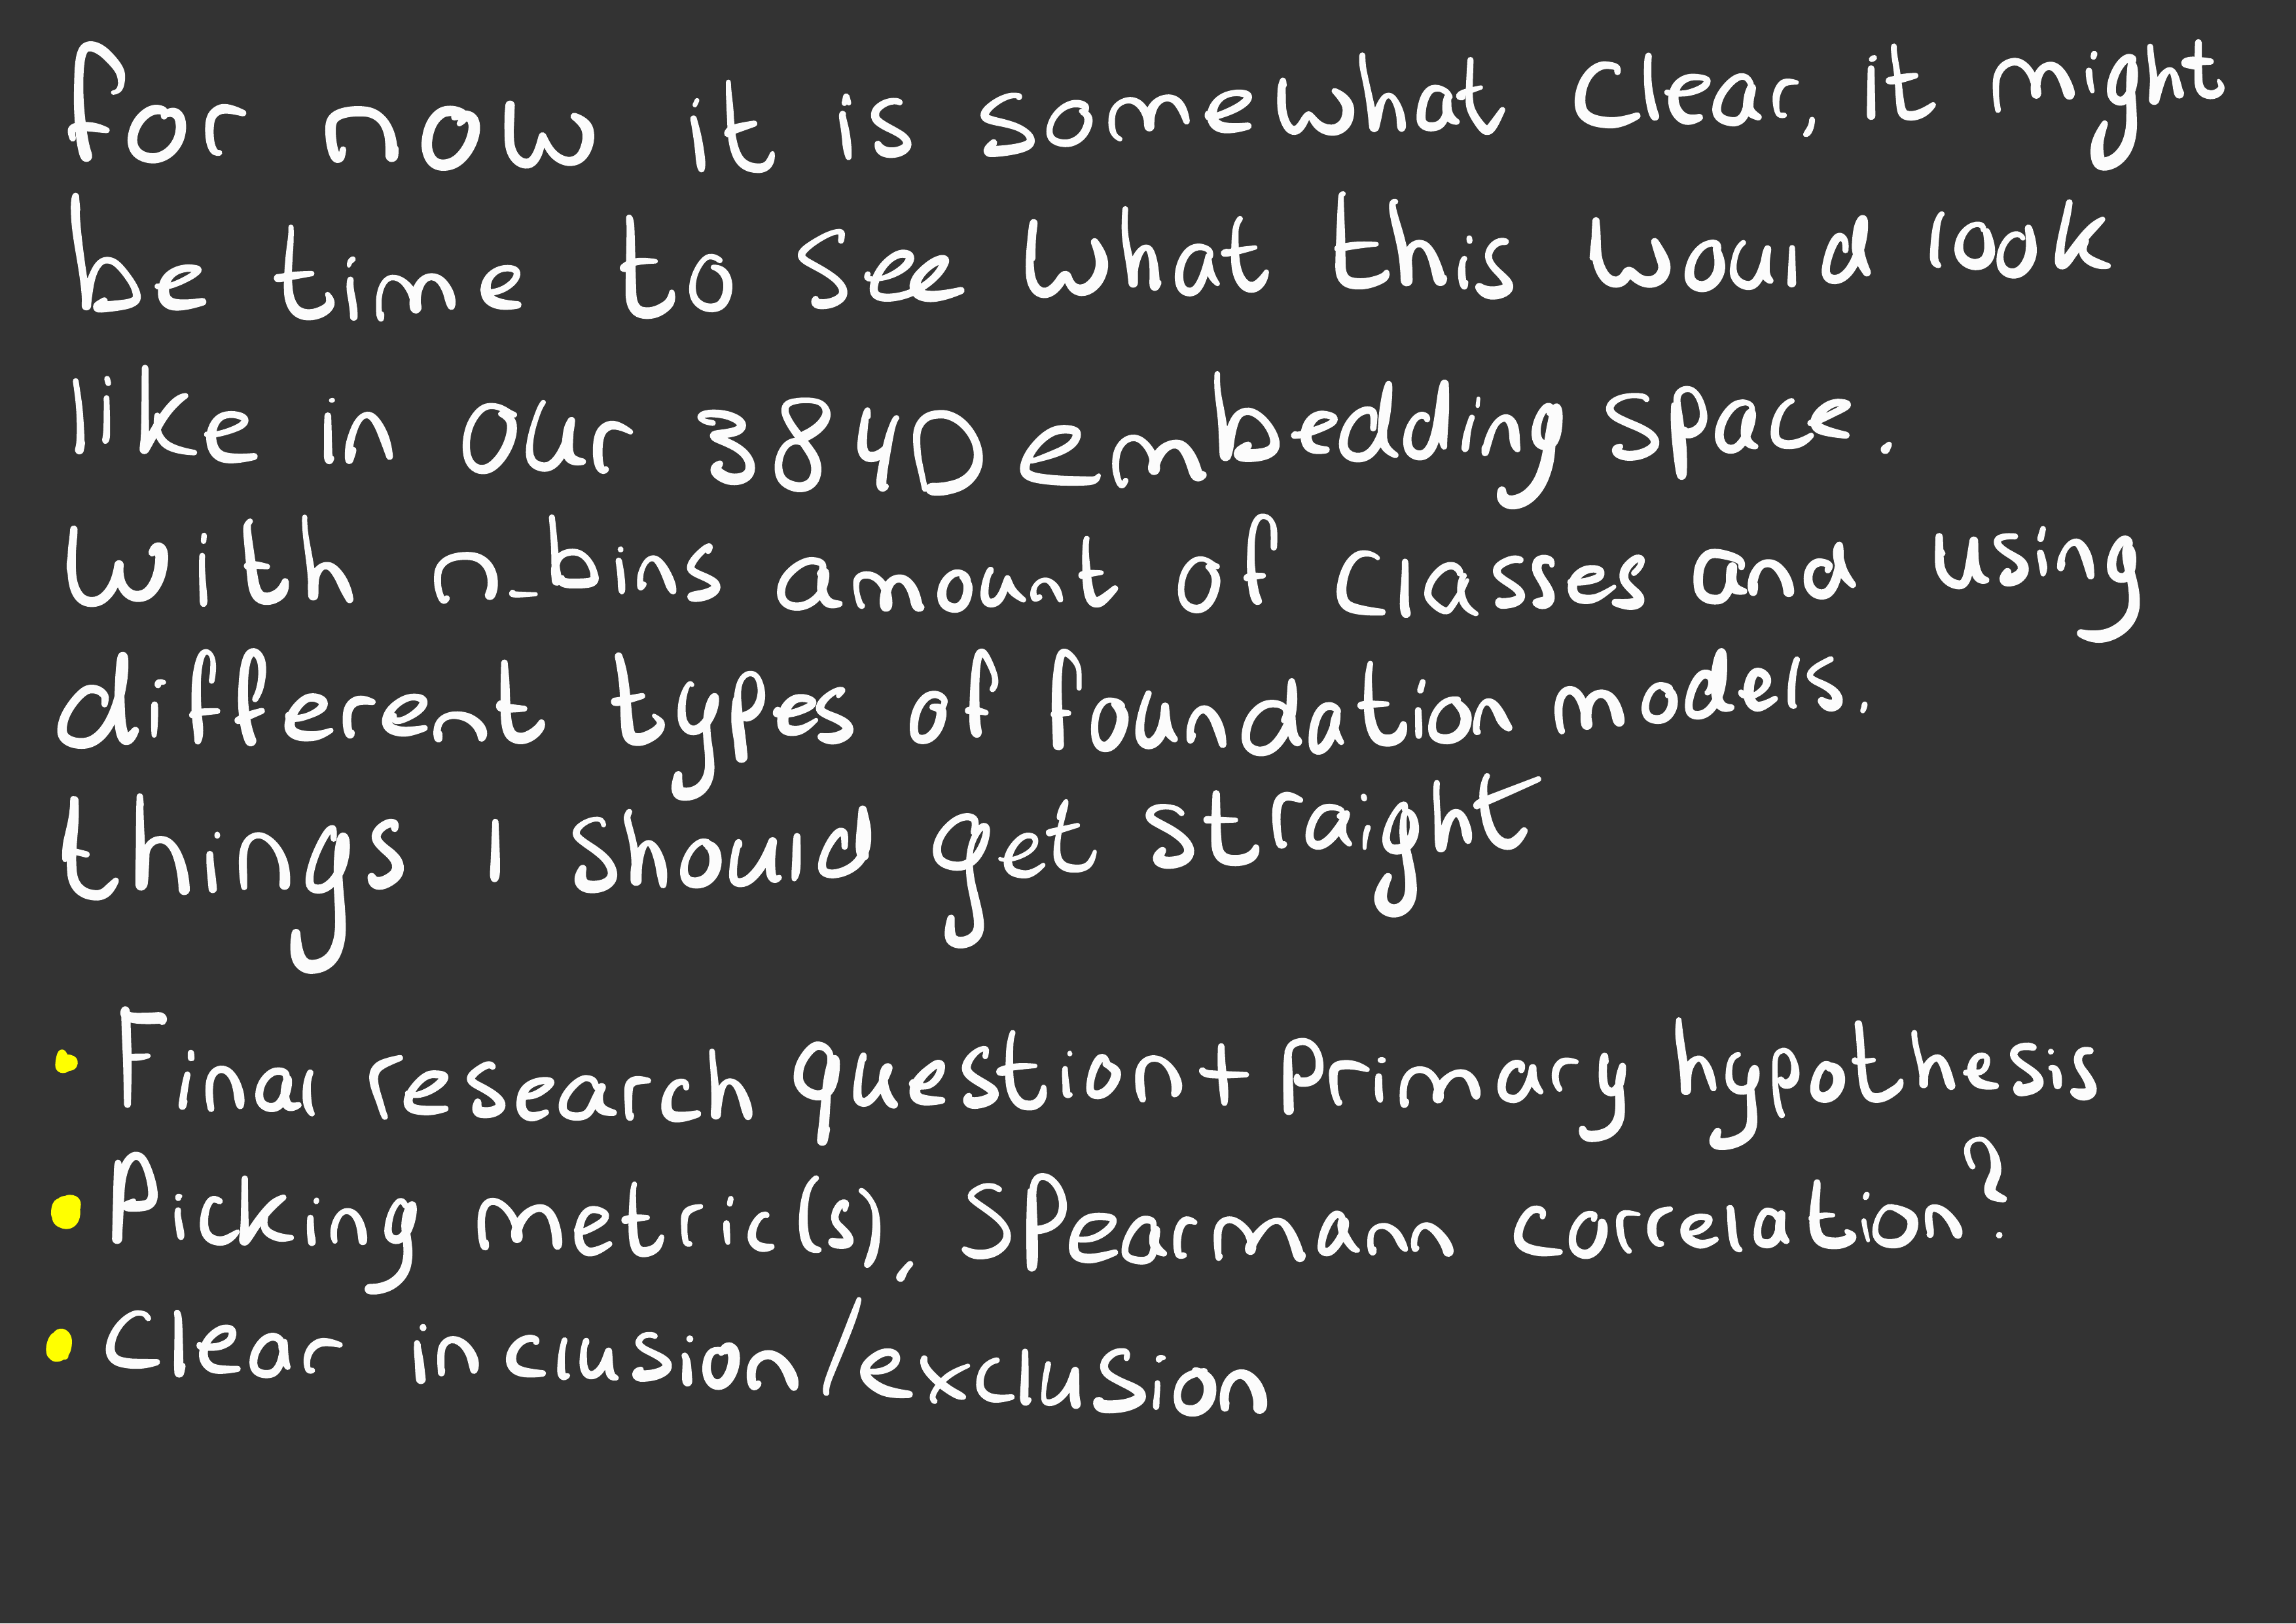 For now it is somewhat clear, it might
be time to see what this would look
like in our 384D Embedding space.
With n_bins amount of classes and using
different types of foundation models.
things I should get straight
• Final research question + Primary hypothesis
• Picking metric(s), Spearmann correlation?
• Clear incusion/exclusion